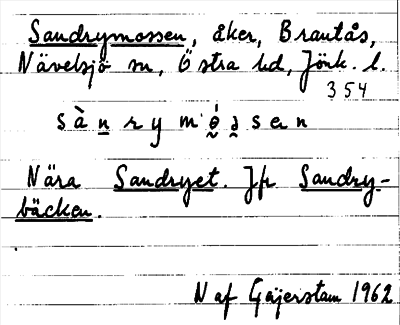 Sandrymossen, åker, Brantås,
Nävelsjö sn, Östra hd, Jönk. l.
354
sànrymó̰ə̯sen
Nära Sandryet. Jfr Sandry-
bäcken.
N af Gäjerstam 1962